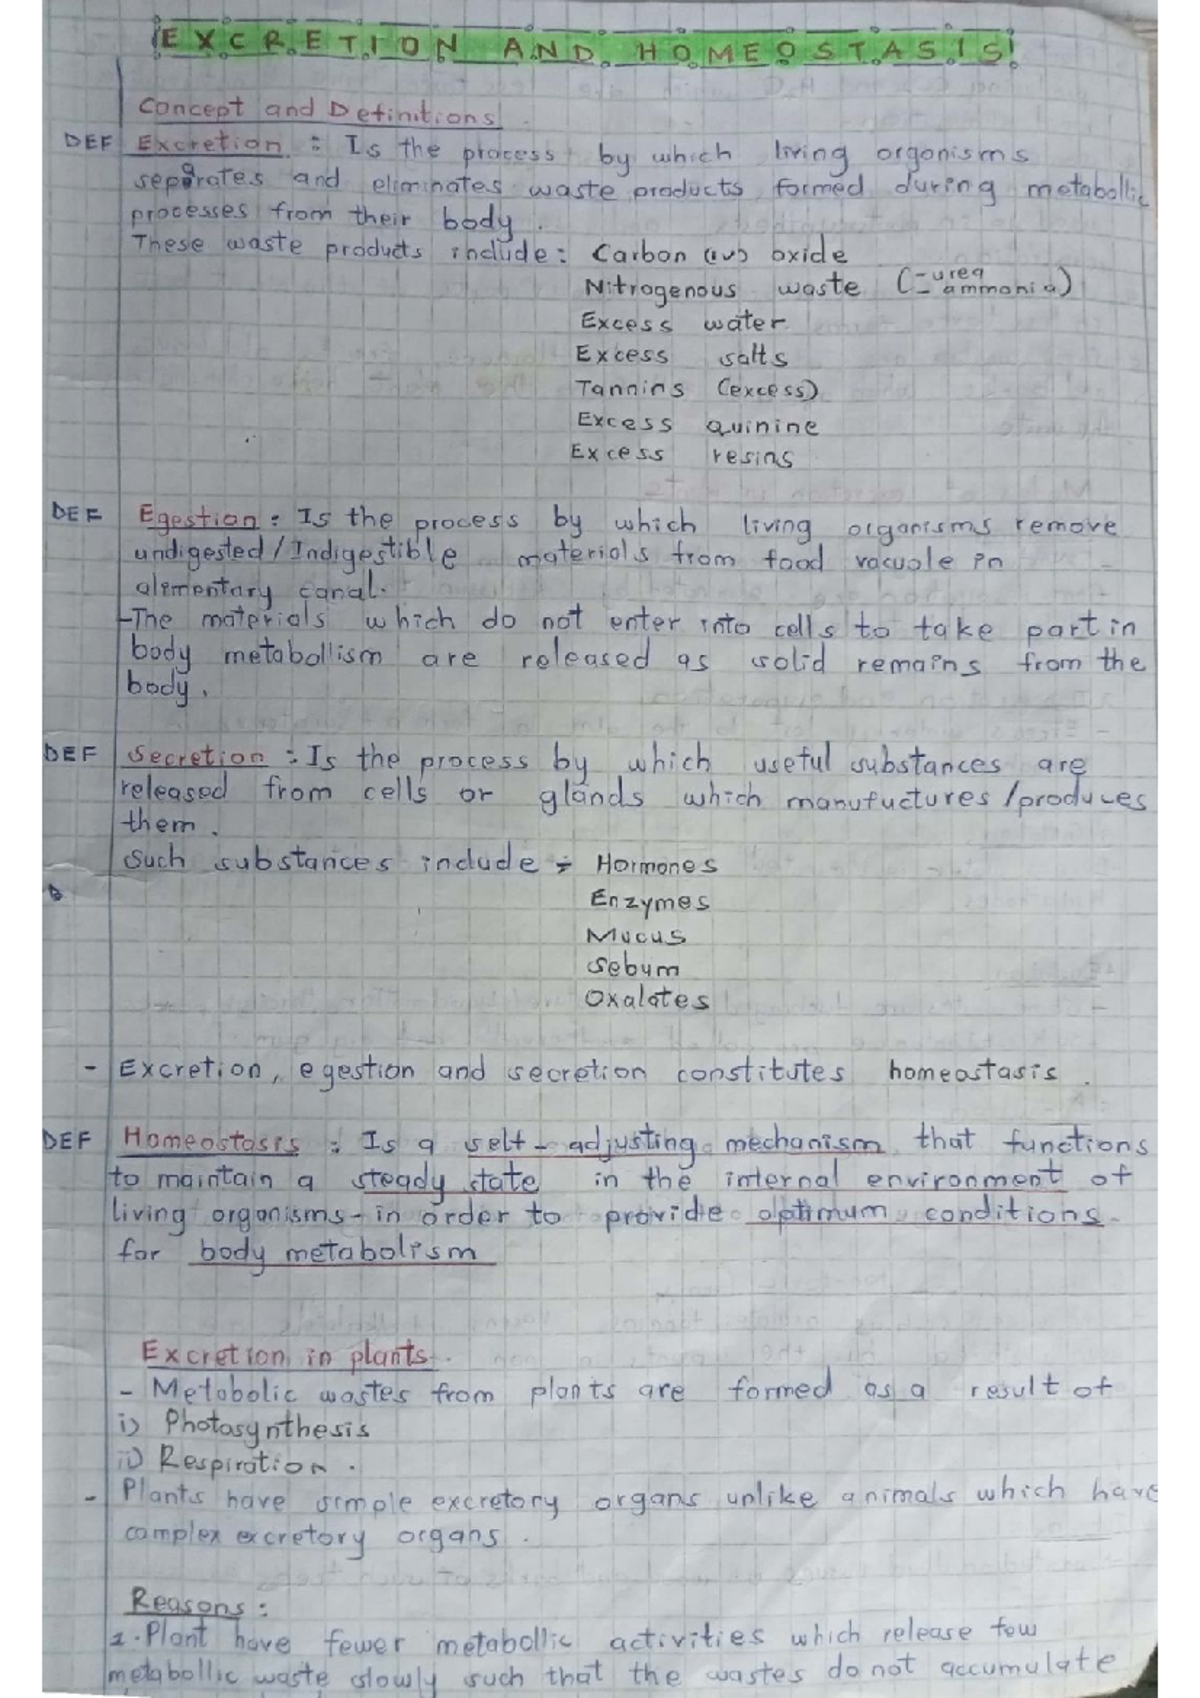 EXCRETION AND HOMEOSTASIS
Concept and Definitions
DEF Excretion : Is the process by which living orgonisms
seperates and eliminates waste products formed during metabollic
processes from their body.
These waste products include: Carbon (iv) oxide
Nitrogenous waste (-urea
-ammonia)
Excess water
Excess salts
Tannins (excess)
Excess quinine
Excess resins
DEF Egestion: Is the process by which living organisms remove
undigested/Indigestible materials from food vacuole in
alementary canal.
-The materials which do not enter into cells to take part in
body metabollism are released as solid remains from the
body.
DEF Secretion : Is the process by which useful substances are
released from cells or glands which manufuctures/produces
them.
Such substances include ÷ Hormones
Enzymes
Mucus
Sebum
Oxalates
- Excretion, egestion and secretion constitutes homeostasis.
DEF Homeostasis : Is a self-adjusting mechanism that functions
to maintain a steady state in the internal environment of
living organisms-in order to provide optimum conditions
for body metabolism
Excretion in plants.
- Metabolic wastes from plants are formed as a result of
i) Photosynthesis
ii) Respiration.
- Plants have simple excretory organs unlike animals which have
complex excretory organs.
Reasons:
1. Plant have fewer metabollic activities which release few
metabollic waste slowly such that the wastes do not accumulate